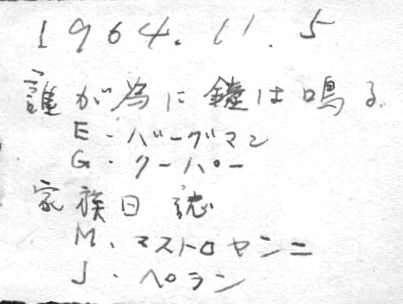 1964.11.5
誰が為に鐘は鳴る
E・バーグマン
G・クーパー
家族日誌
M、マストロヤンニ
J・ペラン